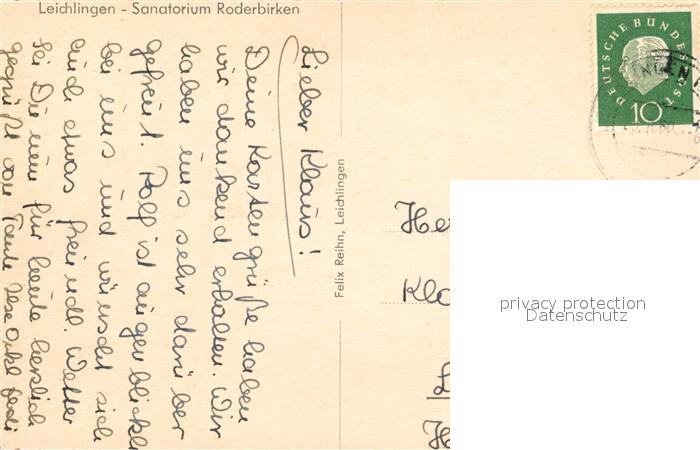 Leichlingen - Sanatorium Roderbirken
Lieber Klaus!
Deine Kartengrüße haben
wir dankend erhalten. Wir
haben uns sehr darüber
gefreut. Rolf ist augenblickl
bei uns und wünscht sich
auch etwas freundl. Wetter
Sei Du nun für heute herzlich
gegrüßt von Tante Ilse Onkel
Felix Reihn, Leichlingen
DEUTSCHE BUNDESPOST
10
He
Kla
privacy protection
Datenschutz